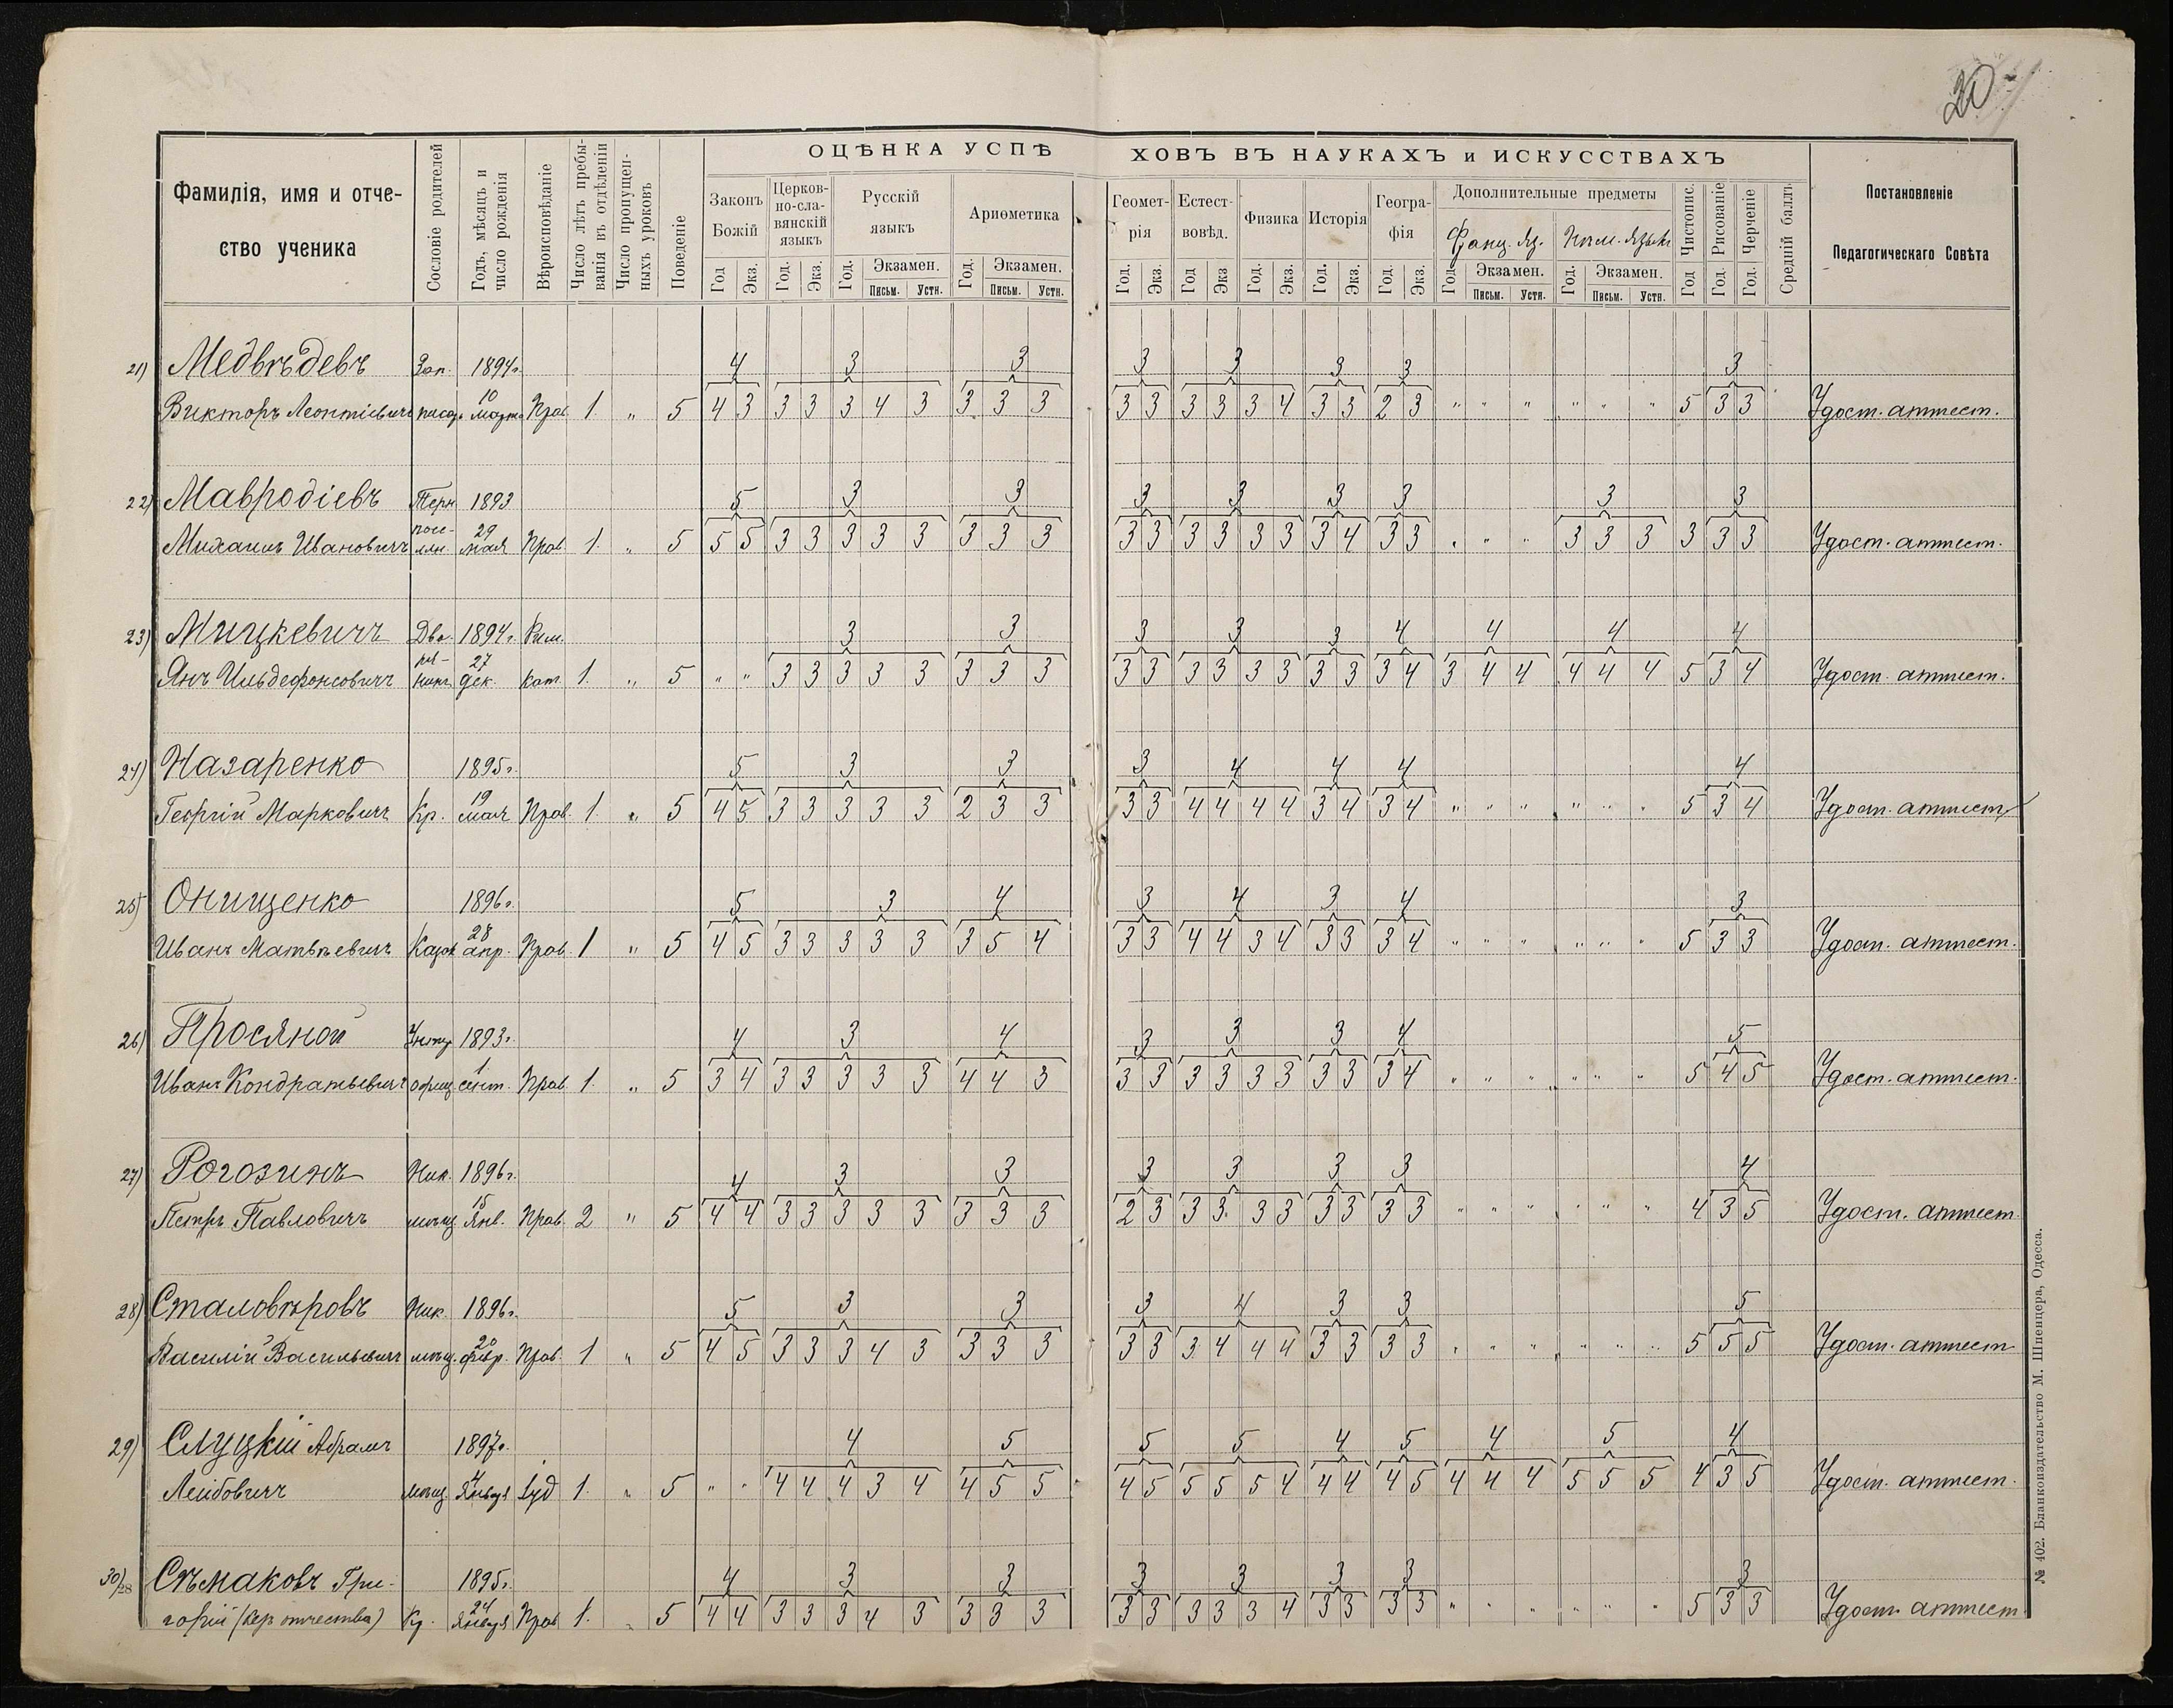 20
ОЦѢНКА УСПѢ ХОВЪ ВЪ НАУКАХЪ и ИСКУССТВАХЪ
Фамилія, имя и отче-
ство ученика
Сословіе родителей
Годъ, мѣсяцъ и
число рожденія
Вѣроисповѣданіе
Число лѣтъ пребы-
ванія въ отдѣленіи
Число пропущен-
ныхъ уроковъ
Поведеніе
Законъ
Божій
Церков-
но-сла-
вянскій
языкъ
Русскій
языкъ
Ариѳметика
Геомет-
рія
Естест-
вовѣд.
Физика
Исторія
Геогра-
фія
Дополнительные предметы
Франц. яз. Нѣм. языкъ
Год Чистопис.
Год. Рисованіе
Год. Черченіе
Средній баллъ.
Постановленіе
Педагогическаго Совѣта
Год Экз. Год. Экз. Год. Экзамен. Год. Экзамен. Год. Экз. Год Экз Год. Экз. Год. Экз. Год. Экз. Год Экзамен. Год. Экзамен.
Письм. Устн. Письм. Устн. Письм. Устн. Письм. Устн.
21) Медвѣдевъ Зап. 1894г. 4 3 3 3 3 3 3 3
10
Викторъ Леонтіевичъ писарь Марта Прав. 1. " 5 4 3 3 3 3 4 3 3 3 3 3 3 3 3 3 4 3 3 2 3 " " " " " " 5 3 3 Удост. аттест.
22) Мавродіевъ 1893 5 3 3 3 3 3 3 3 3
посе- 29
Михаилъ Ивановичъ лян. мая Прав. 1. " 5 5 5 3 3 3 3 3 3 3 3 3 3 3 3 3 3 3 4 3 3 " " " 3 3 3 3 3 3 Удост. аттест.
23) Мицкевичъ Дво- 1894г. Рим. 3 3 3 3 3 4 4 4 4
ря- 27
Янъ Ильдефонсовичъ нинъ дек. кат. 1. " 5 " " 3 3 3 3 3 3 3 3 3 3 3 3 3 3 3 3 3 4 3 4 4 4 4 4 5 3 4 Удост. аттест.
24) Назаренко 1895г. 5 3 3 3 4 4 4 4
19
Георгій Марковичъ Кр. мая Прав. 1. " 5 4 5 3 3 3 3 3 2 3 3 3 3 4 4 4 4 3 4 3 4 " " " " " " 5 3 4 Удост. аттест.
25) Онищенко 1896г. 5 3 4 3 4 3 4 3
28
Иванъ Матвѣевичъ Казак апр. Прав. 1 " 5 4 5 3 3 3 3 3 3 5 4 3 3 4 4 3 4 3 3 3 4 " " " " " " 5 3 3 Удост. аттест.
26) Просяной Унтер 1893г. 4 3 4 3 3 3 4 5
1
Иванъ Кондратьевичъ офиц. сент. Прав. 1. " 5 3 4 3 3 3 3 3 4 4 3 3 3 3 3 3 3 3 3 3 4 " " " " " " 5 4 5 Удост. аттест.
27) Рогозинъ Ник. 1896г. 4 3 3 3 3 3 3 4
15
Петръ Павловичъ мѣщ. Янв. Прав. 2 " 5 4 4 3 3 3 3 3 3 3 3 2 3 3 3 3 3 3 3 3 3 " " " " " " 4 3 5 Удост. аттест.
28) Сталовѣровъ Ник. 1896г. 5 3 3 3 4 3 3 5
20
Василій Васильевичъ мѣщ. февр. Прав. 1 " 5 4 5 3 3 3 4 3 3 3 3 3 3 3 4 4 4 3 3 3 3 " " " " " " 5 5 5 Удост. аттест
29) Слуцкій Абрамъ 1897г. 4 5 5 5 4 5 4 5 4
4
Лейбовичъ мѣщ. Января Іуд. 1. " 5 " " 4 4 4 3 4 4 5 5 4 5 5 5 5 4 4 4 4 5 4 4 4 5 5 5 4 3 5 Удост. аттест.
30)/28 Сѣмаковъ Гри- 1895г. 4 3 3 3 3 3 3 3
24
горій (без отчества) Кр. Января Прав. 1. " 5 4 4 3 3 3 4 3 3 3 3 3 3 3 3 3 4 3 3 3 3 " " " " " " 5 3 3 Удост. аттест
№ 402. Бланкоиздательство М. Шпенцера, Одесса.